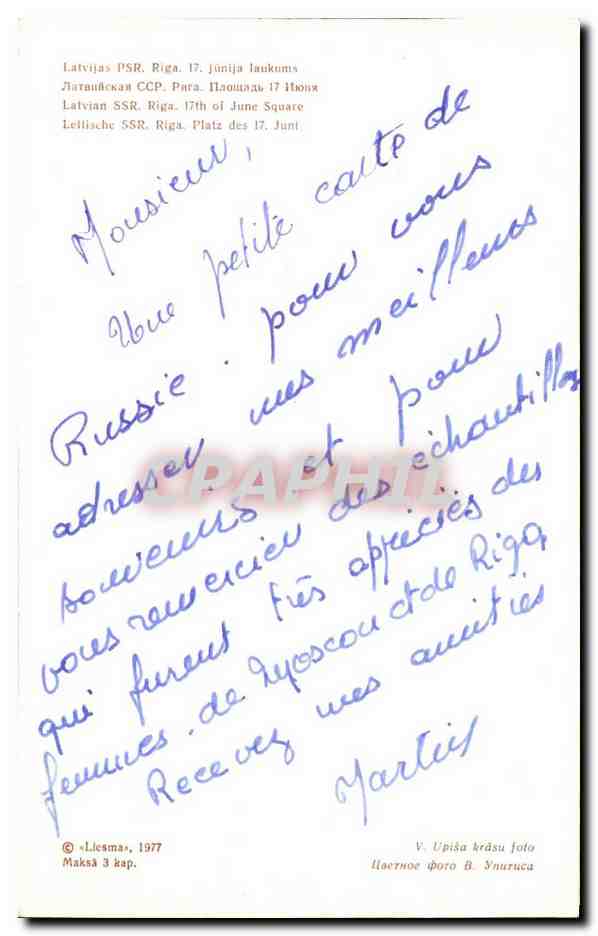 Latvijas PSR. Rīga. 17. jūnija laukums
Латвийская ССР. Рига. Площадь 17 Июня
Latvian SSR. Riga. 17th of June Square
Lettische SSR. Riga. Platz des 17. Juni
Monsieur,
Une petite carte de
Russie. pour vous
adresser mes meilleurs
souvenirs et pour
vous remercier des échantillons
qui furent très appréciés des
femmes. de Moscou et de Riga,
Recevez mes amitiés
CPAPHIL
© «Liesma», 1977
Maksā 3 kap.
V. Upīša krāsu foto
Цветное фото В. Упитиса